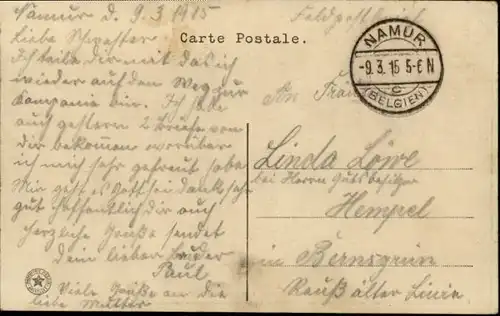 Namur d. 9.3.1915
Feldpostbrief
Carte Postale.
NAMUR
-9.3.15 5-6 N
c
(BELGIEN)
Liebe Schwester
Ich teile dir mit das ich
wieder auf dem Weg zur
Kompanie bin. Ich habe
auch gestern 2 Briefe von
dir bekomen worüber
ich mich sehr gefreut habe
Mir geht es Gott sei dank sehr
gut hoffentlich dir auch
herzliche Grüße sendet
dein lieber Bruder
Paul
Viele Grüße an die
liebe Mutter
An Frau
Linda Löwe
bei Herrn Gutsbesitzer
Hempel
in Bernsgrün
Reuß älter Linie.